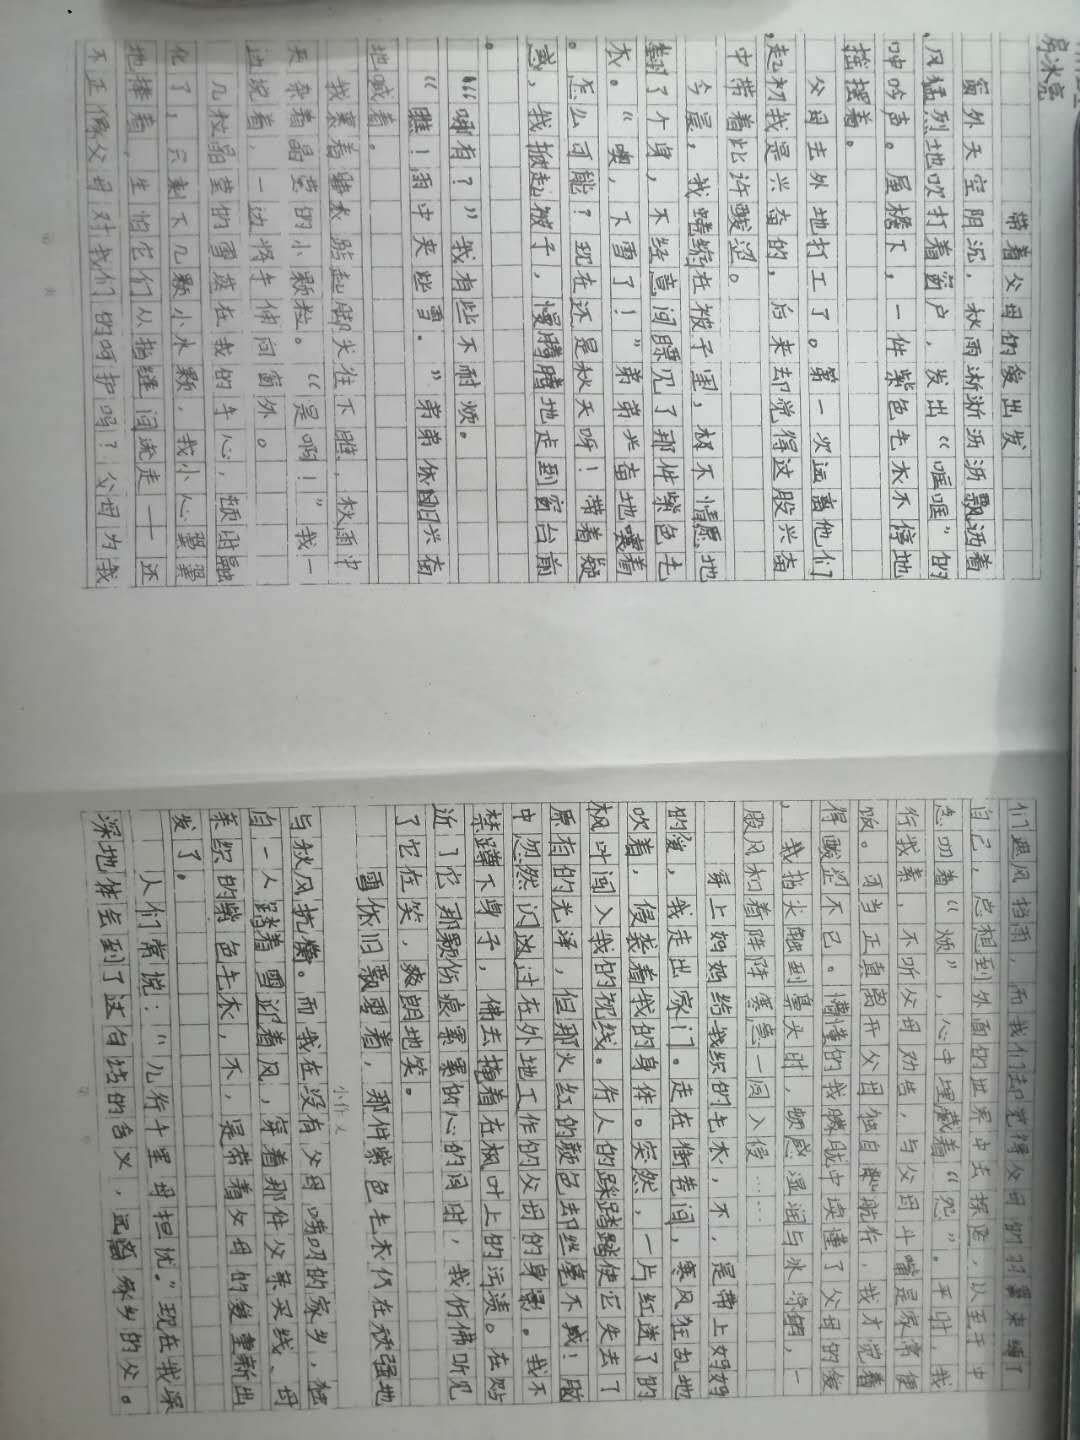 房冰亮
带着父母的爱出发
窗外天空阴沉，秋雨淅淅沥沥飘洒着
，风猛烈地吹打着窗户，发出“哐哐”的
呻吟声。屋檐下，一件紫色毛衣不停地
摇摆着。
父母去外地打工了。第一次远离他们
，起初我是兴奋的，后来却觉得这股兴奋
中带着些许酸涩。
今晨，我蜷缩在被子里，极不情愿地
翻了个身，不经意间瞟见了那件紫色毛
衣。“噢，下雪了！”弟弟兴奋地嚷着
。怎么可能？现在还是秋天呀！带着疑
惑，我掀起被子，慢腾腾地走到窗台前
。
“哪有？”我有些不耐烦。
“瞧！雨中夹些雪。”弟弟依旧兴奋
地喊着。
我裹着睡衣踮起脚尖往下瞧，秋雨中
夹杂着晶莹的小颗粒。“是啊！”我一
边说着，一边将手伸向窗外。
几粒晶莹的雪花在我的手心，顿时融
化了，只剩下几颗小水颗，我小心翼翼
地捧着，生怕它们从指缝间流走——这
不正像父母对我们的呵护吗？父母为我
们遮风挡雨，而我们却觉得父母的羽翼束缚了
自己，总想到外面的世界中去探险，以至于口中
念叨着“烦”，心中埋藏着“怨”。平时，我
行我素，不听父母劝告，与父母斗嘴是家常便
饭。可当正真离开父母独自生活时，我才觉着
得酸涩不已。懵懂的我朦胧中读懂了父母的爱
，我指尖触到鼻尖时，顿感湿润与冰凉，一
股风和着阵阵寒意一同入侵……
穿上妈妈给我织的毛衣，不，是带上妈妈
的爱，我走出家门。走在街巷间，寒风狂乱地
吹着，侵袭着我的身体。突然，一片红透了的
枫叶闯入我的视线。行人的踩踏使它失去了
原有的光泽，但那火红的颜色却丝毫不减！脑
中忽然闪过在外地工作的父母的身影。我不
禁蹲下身子，拂去掩着在枫叶上的污渍。在贴
近了它那颗伤痕累累的心的同时，我仿佛听见
了它在笑，爽朗地笑。
雪依旧飘零着，那件紫色毛衣仍在顽强地
与秋风抗衡。而我在没有父母唠叨的家乡，独
自一人踏着雪迎着风，穿着那件父亲买线、母
亲织的紫色毛衣，不，是带着父母的爱重新出
发了。
人们常说：“儿行千里母担忧。”现在我深
深地体会到了这句话的含义，远离家乡的父。